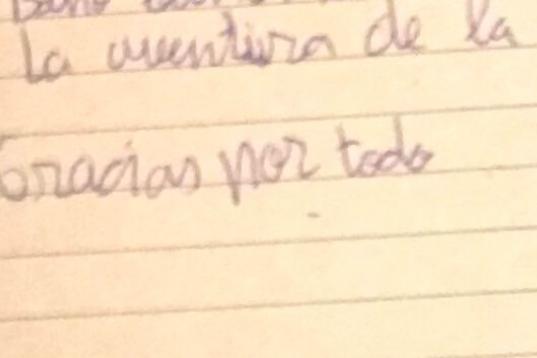 La aventura de la
Gracias por todo